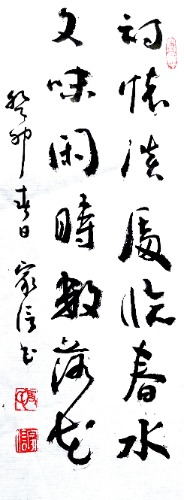 詩懷淡處臨春水
文味閑時數落花
癸卯春日家信書